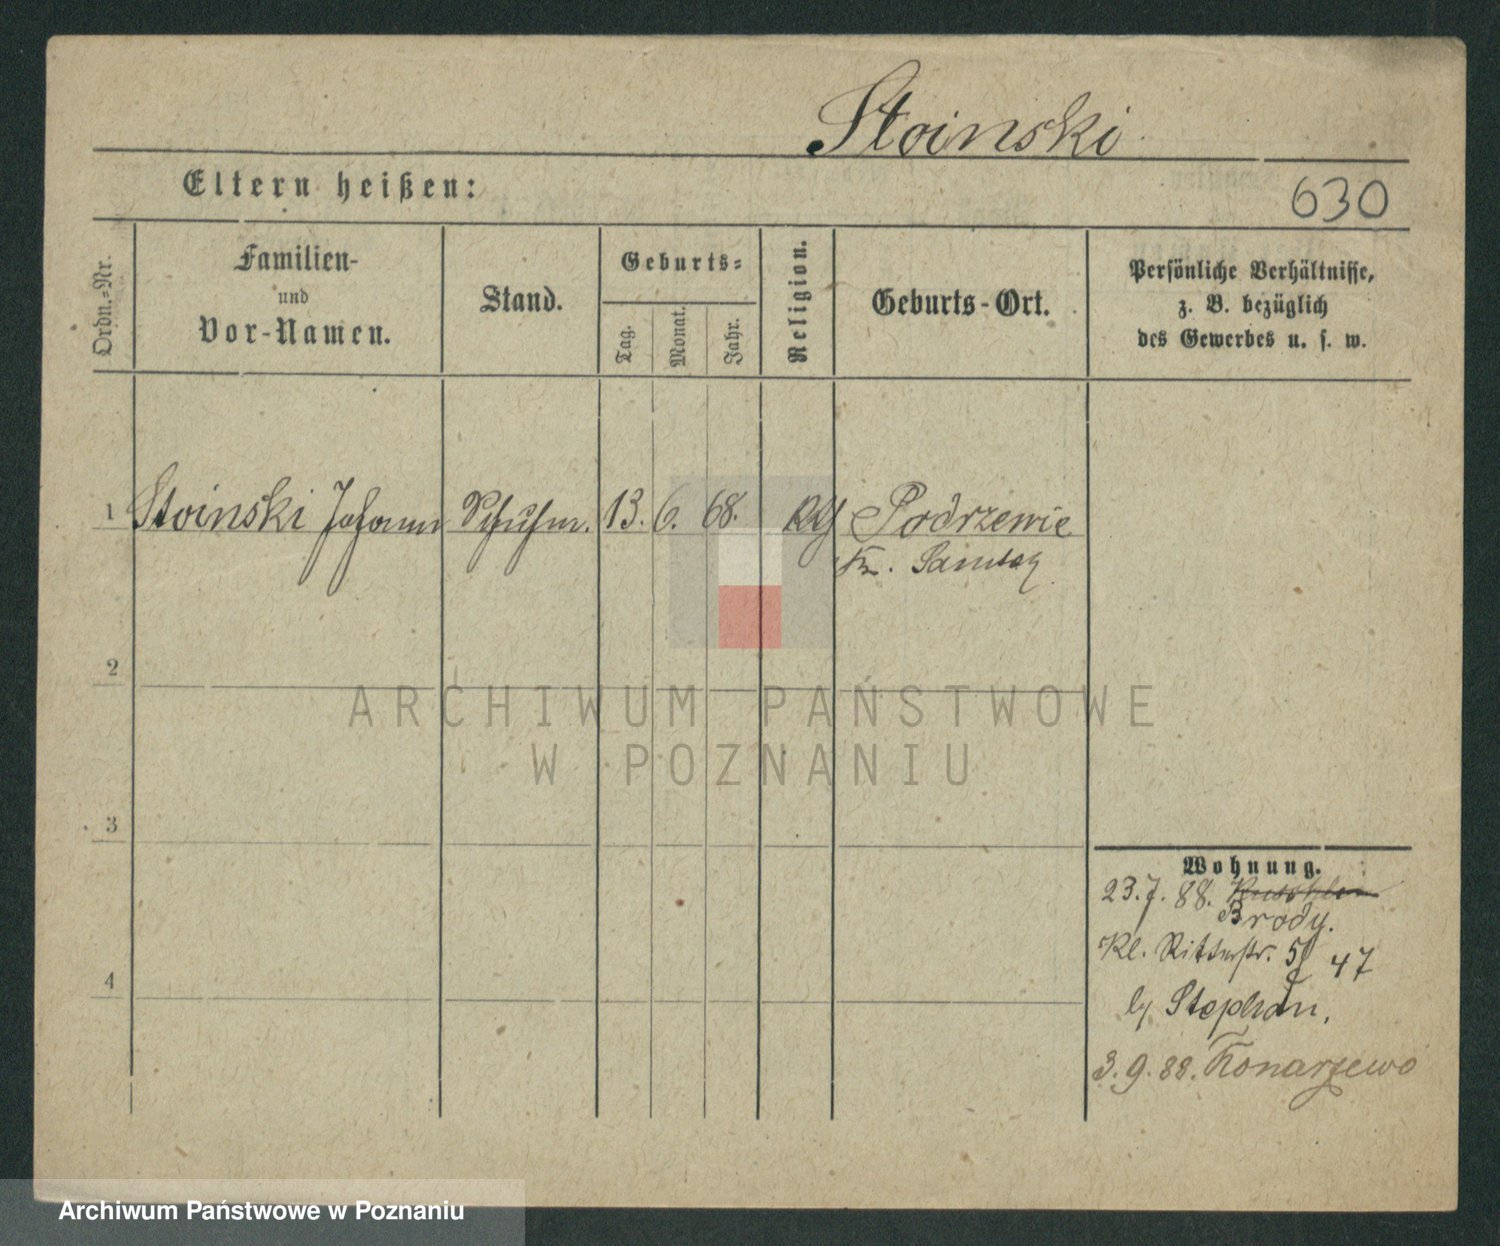 Stoinski
Eltern heißen:
630
Ordn.-Nr.
Familien-
und
Vor-Namen.
Stand.
Geburts-
Tag.
Monat.
Jahr.
Religion.
Geburts-Ort.
Persönliche Verhältnisse,
z. B. bezüglich
des Gewerbes u. s. w.
1 Stoinski Johann Schuhm. 13. 6. 68. Podrzewie
Kr. Samter
2
3
4
ARCHIWUM PAŃSTWOWE
W POZNANIU
Wohnung.
23.7.88.
Brody.
Kl. Ritterstr. 5 47
Stephan.
3.9.88. Konarzewo
Archiwum Państwowe w Poznaniu